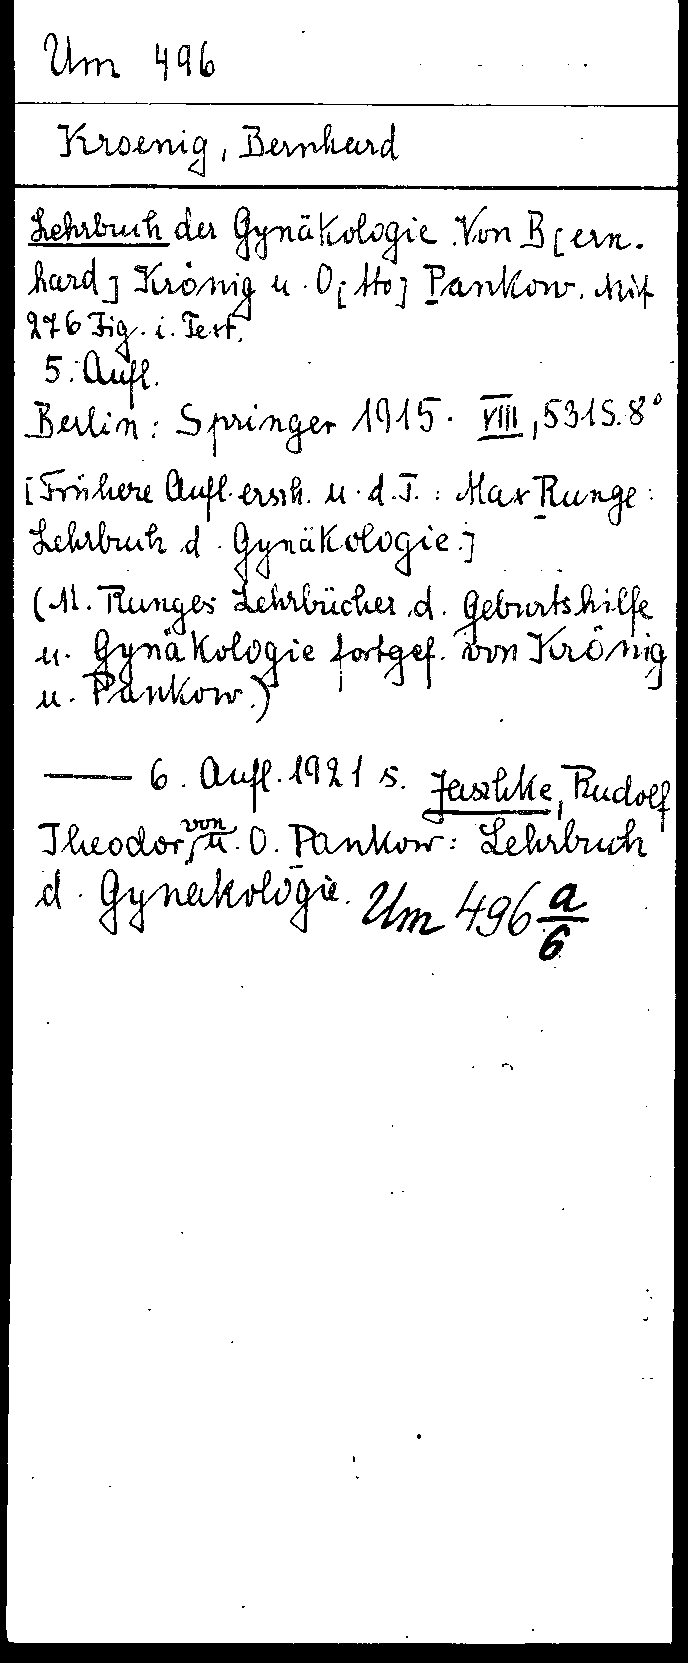 Um 496
Kroenig, Bernhard
Lehrbuch der Gynäkologie. Von B[ern-
hard] Krönig u. O[tto] Pankow. Mit
276 Fig. i. Text.
5. Aufl.
Berlin: Springer 1915. VIII, 531 S. 8°
[Frühere Aufl. ersch. u. d. T.: Max Runge:
Lehrbuch d. Gynäkologie.]
(M. Runges Lehrbücher d. Geburtshilfe
u. Gynäkologie fortgef. von Krönig
u. Pankow.)
— 6. Aufl. 1921 s. Jaschke, Rudolf
Theodor von u. O. Pankow: Lehrbuch
d. Gynäkologie. Um 496 a/6